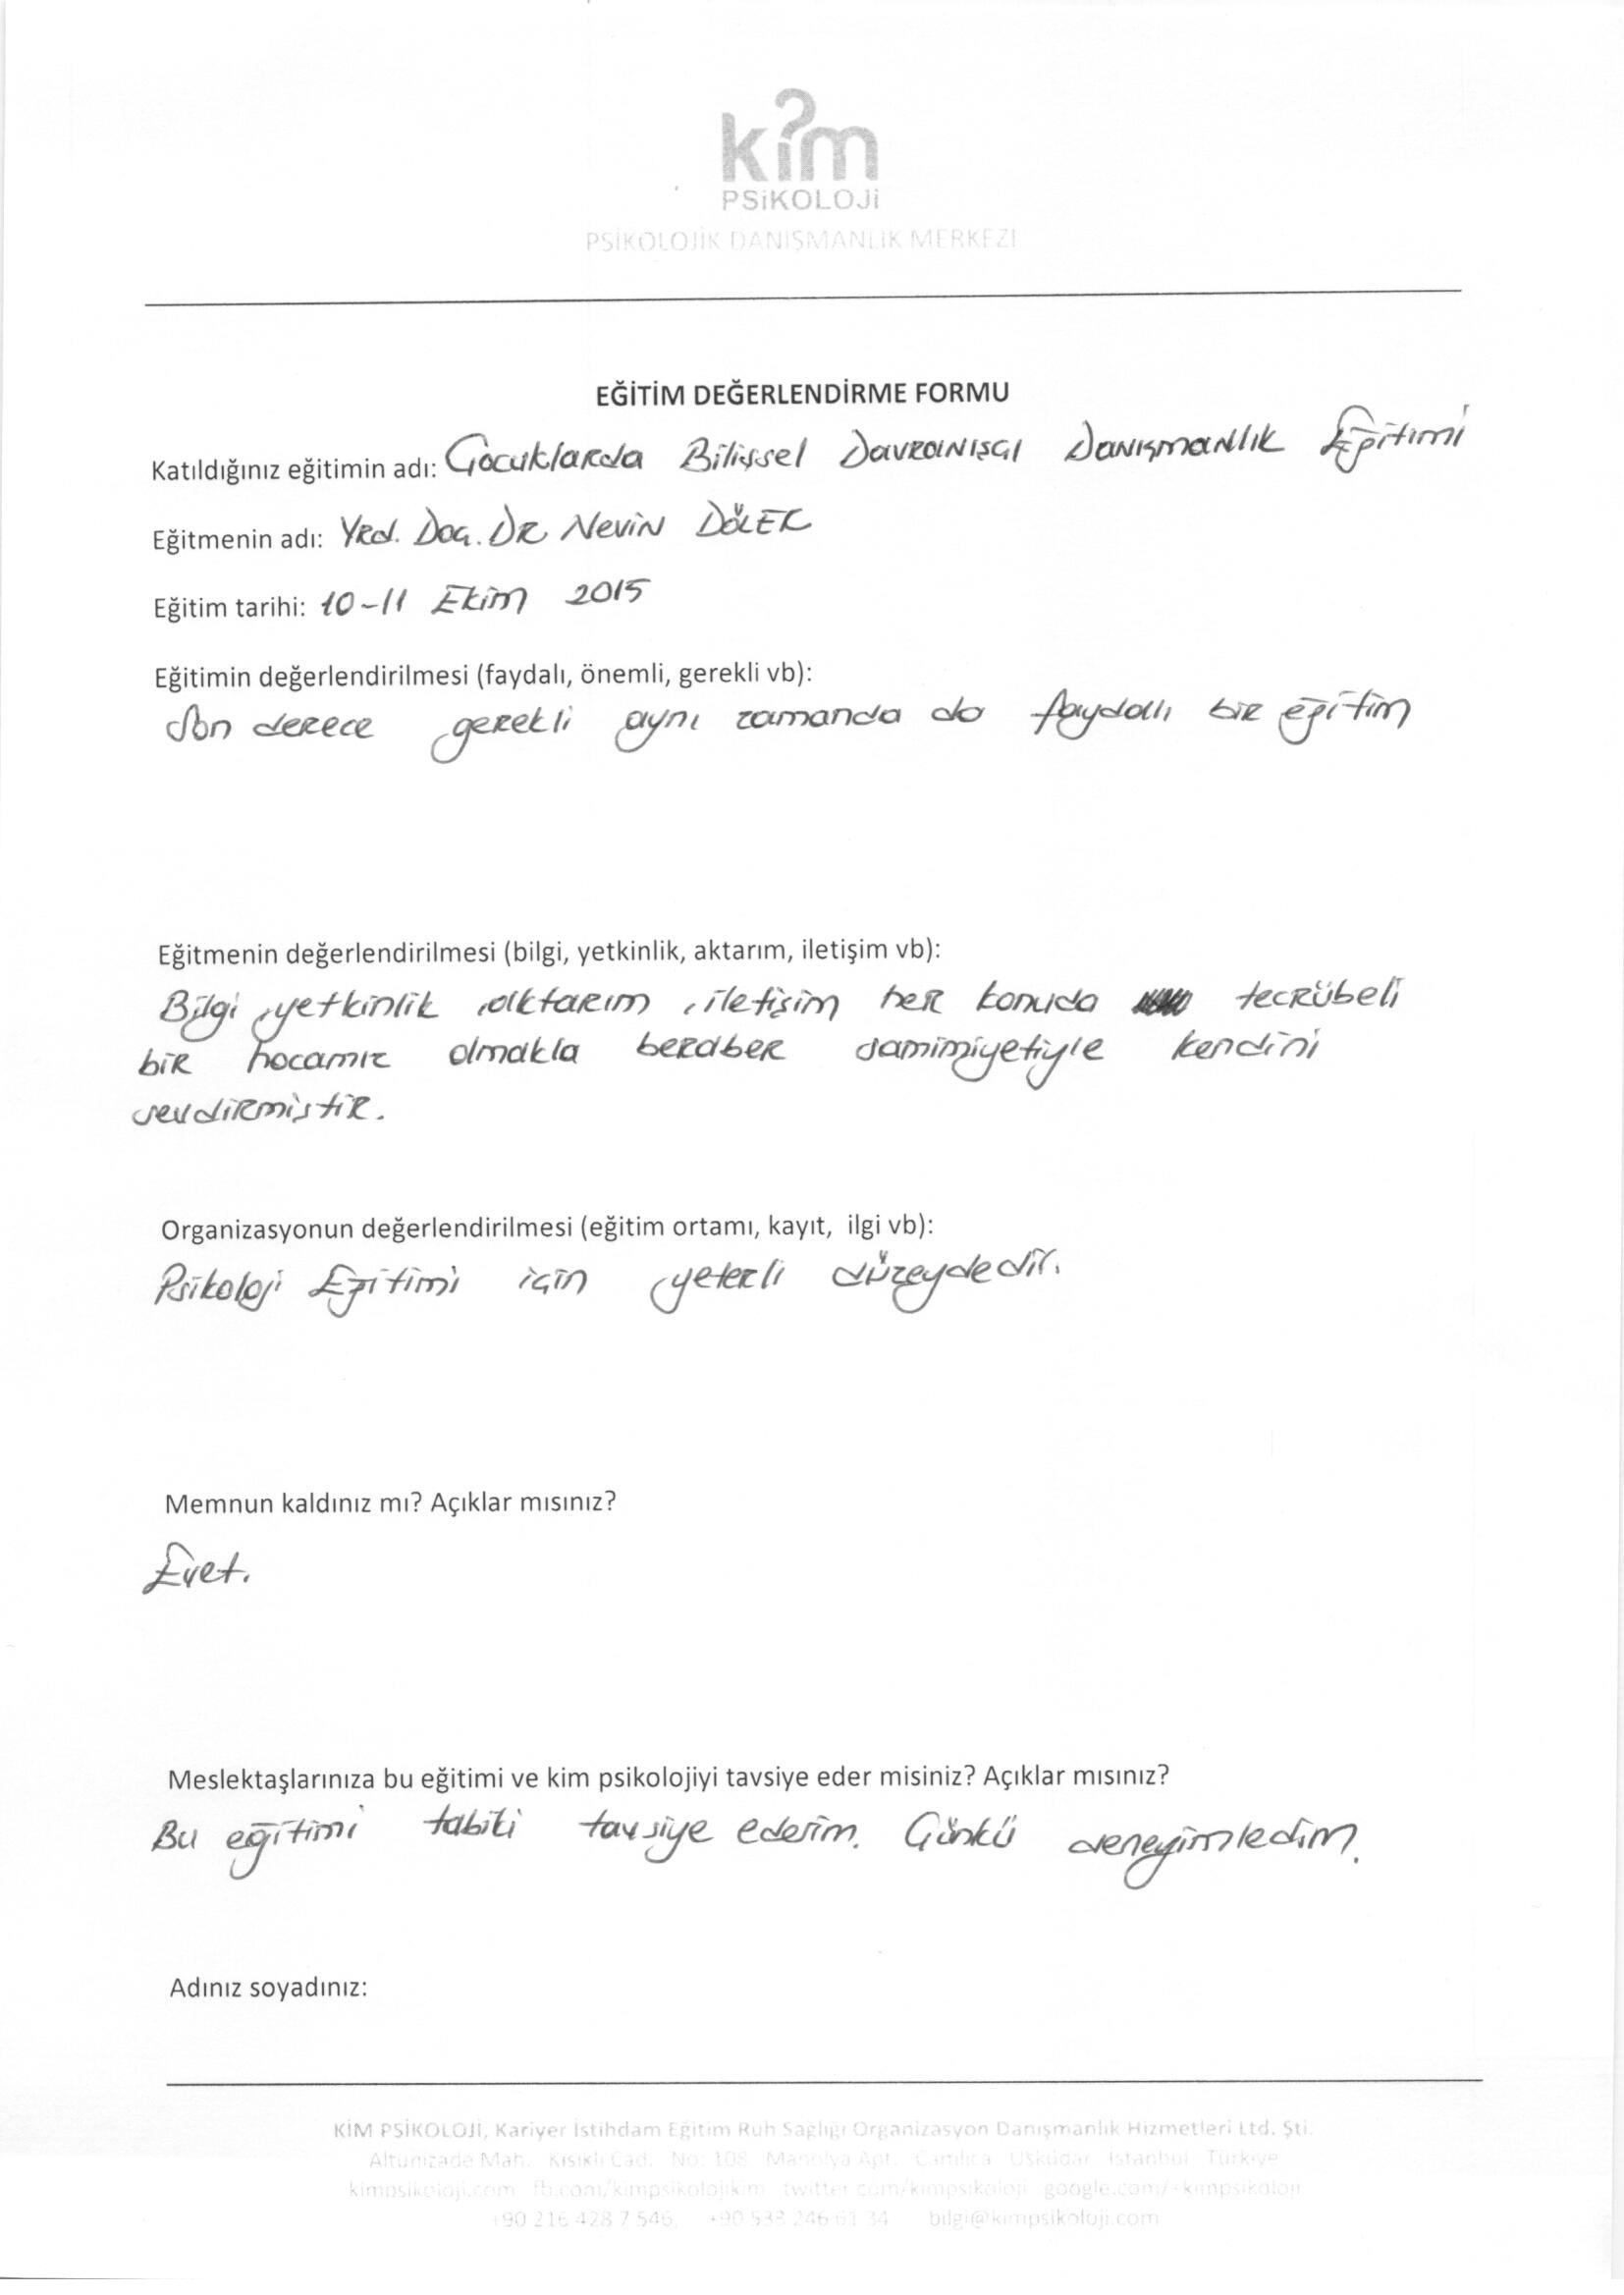 kim
PSİKOLOJİ
PSİKOLOJİK DANIŞMANLIK MERKEZİ
EĞİTİM DEĞERLENDİRME FORMU
Katıldığınız eğitimin adı: Çocuklarda Bilişsel Davranışçı Danışmanlık Eğitimi
Eğitmenin adı: Yrd. Doç. Dr Nevin DÖLEK
Eğitim tarihi: 10-11 Ekim 2015
Eğitimin değerlendirilmesi (faydalı, önemli, gerekli vb):
Son derece gerekli aynı zamanda da faydalı bir eğitim
Eğitmenin değerlendirilmesi (bilgi, yetkinlik, aktarım, iletişim vb):
Bilgi, yetkinlik, aktarım, iletişim her konuda tecrübeli
bir hocamız olmakla beraber samimiyetiyle kendini
sevdirmiştir.
Organizasyonun değerlendirilmesi (eğitim ortamı, kayıt, ilgi vb):
Psikoloji Eğitimi için yeterli düzeydedir.
Memnun kaldınız mı? Açıklar mısınız?
Evet.
Meslektaşlarınıza bu eğitimi ve kim psikolojiyi tavsiye eder misiniz? Açıklar mısınız?
Bu eğitimi tabiki tavsiye ederim. Çünkü deneyimledim.
Adınız soyadınız:
KİM PSİKOLOJİ, Kariyer İstihdam Eğitim Ruh Sağlığı Organizasyon Danışmanlık Hizmetleri Ltd. Şti.
Altunizade Mah. Kısıklı Cad. No: 108 Manolya Apt. Çamlıca Üsküdar İstanbul Türkiye
kimpsikoloji.com fb.com/kimpsikolojikim twitter.com/kimpsikoloji google.com/+kimpsikoloji
+90 216 428 7 546, +90 533 246 61 34 bilgi@kimpsikoloji.com